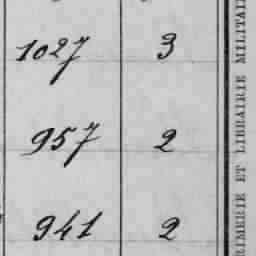 1027 3
957 2
941 2
RIMERIE ET LIBRAIRIE MILITAI